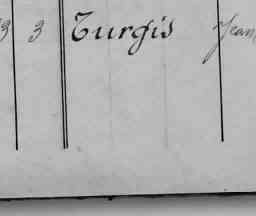 3 3 Turgis Jean